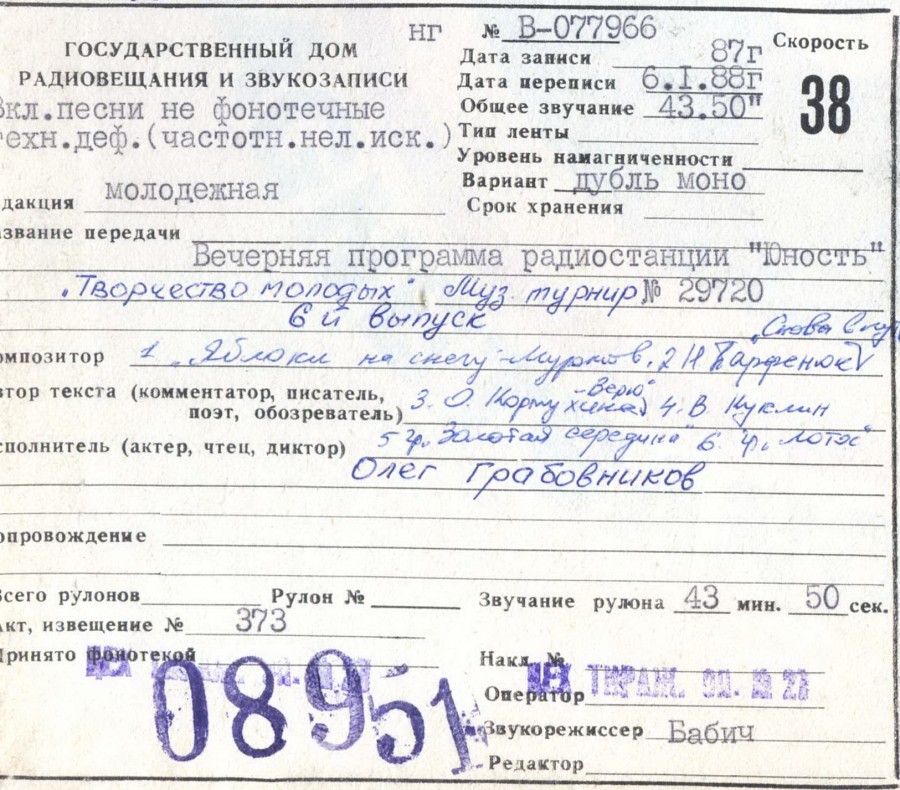 нг № В-077966
ГОСУДАРСТВЕННЫЙ ДОМ
РАДИОВЕЩАНИЯ И ЗВУКОЗАПИСИ
Скорость
38
Дата записи 87г
Дата переписи 6.I.88г
Общее звучание 43.50"
Тип ленты
Уровень намагниченности
Вариант дубль моно
Срок хранения
Вкл.песни не фонотечные
техн.деф.(частотн.нел.иск.)
дакция молодежная
азвание передачи
Вечерняя программа радиостанции "Юность"
"Творчество молодых" Муз турнир № 29720
6й выпуск
омпозитор 1. "Яблоки на снегу" 2 Н Парфенюк
втор текста (комментатор, писатель,
поэт, обозреватель) 3. О. Кормухина "Верю" 4. В. Куклин
сполнитель (актер, чтец, диктор) 5 гр. "Золотая середина" 6. гр. "Лотос"
Олег Грабовников
опровождение
Всего рулонов Рулон № Звучание рулона 43 мин. 50 сек.
Акт, извещение № 373
Принято фонотекой
08951
Накл. №
ЦЕХ ТИРАЖ.
Оператор
Звукорежиссер Бабич
Редактор